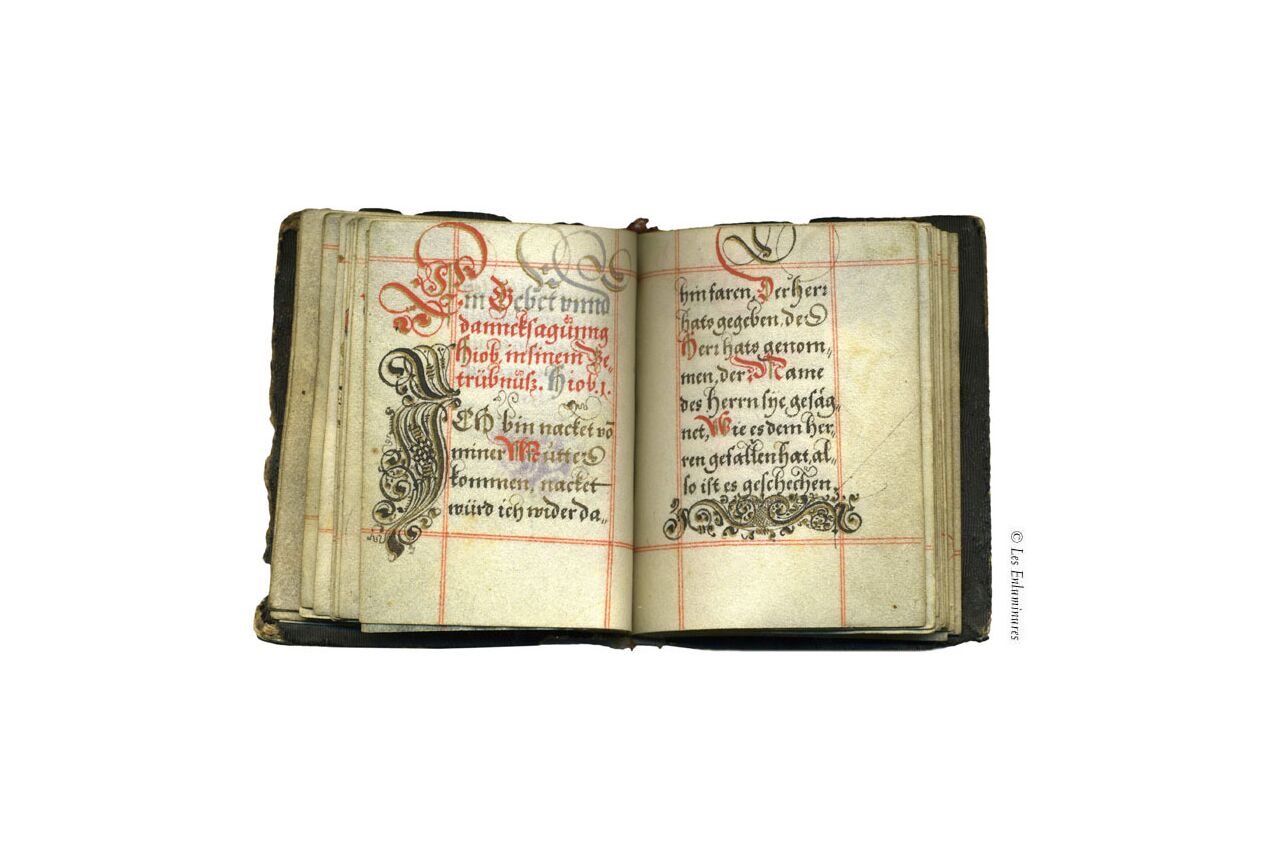 Ein Gebet vnnd
dancksagünng
Hiob, in sinem Be-
trübnüß. Hiob.1.
ICH bin nacket vō
miner Mütter
kommen, nacket
würd ich wider da„
hin faren, Der Herr
hats gegeben, der
Herr hats genom„
men, der Name
des Herrn sÿe gesäg„
net, Wie es dem her„
ren gefallen hat, al„
so ist es geschechen.
© Les Enluminures